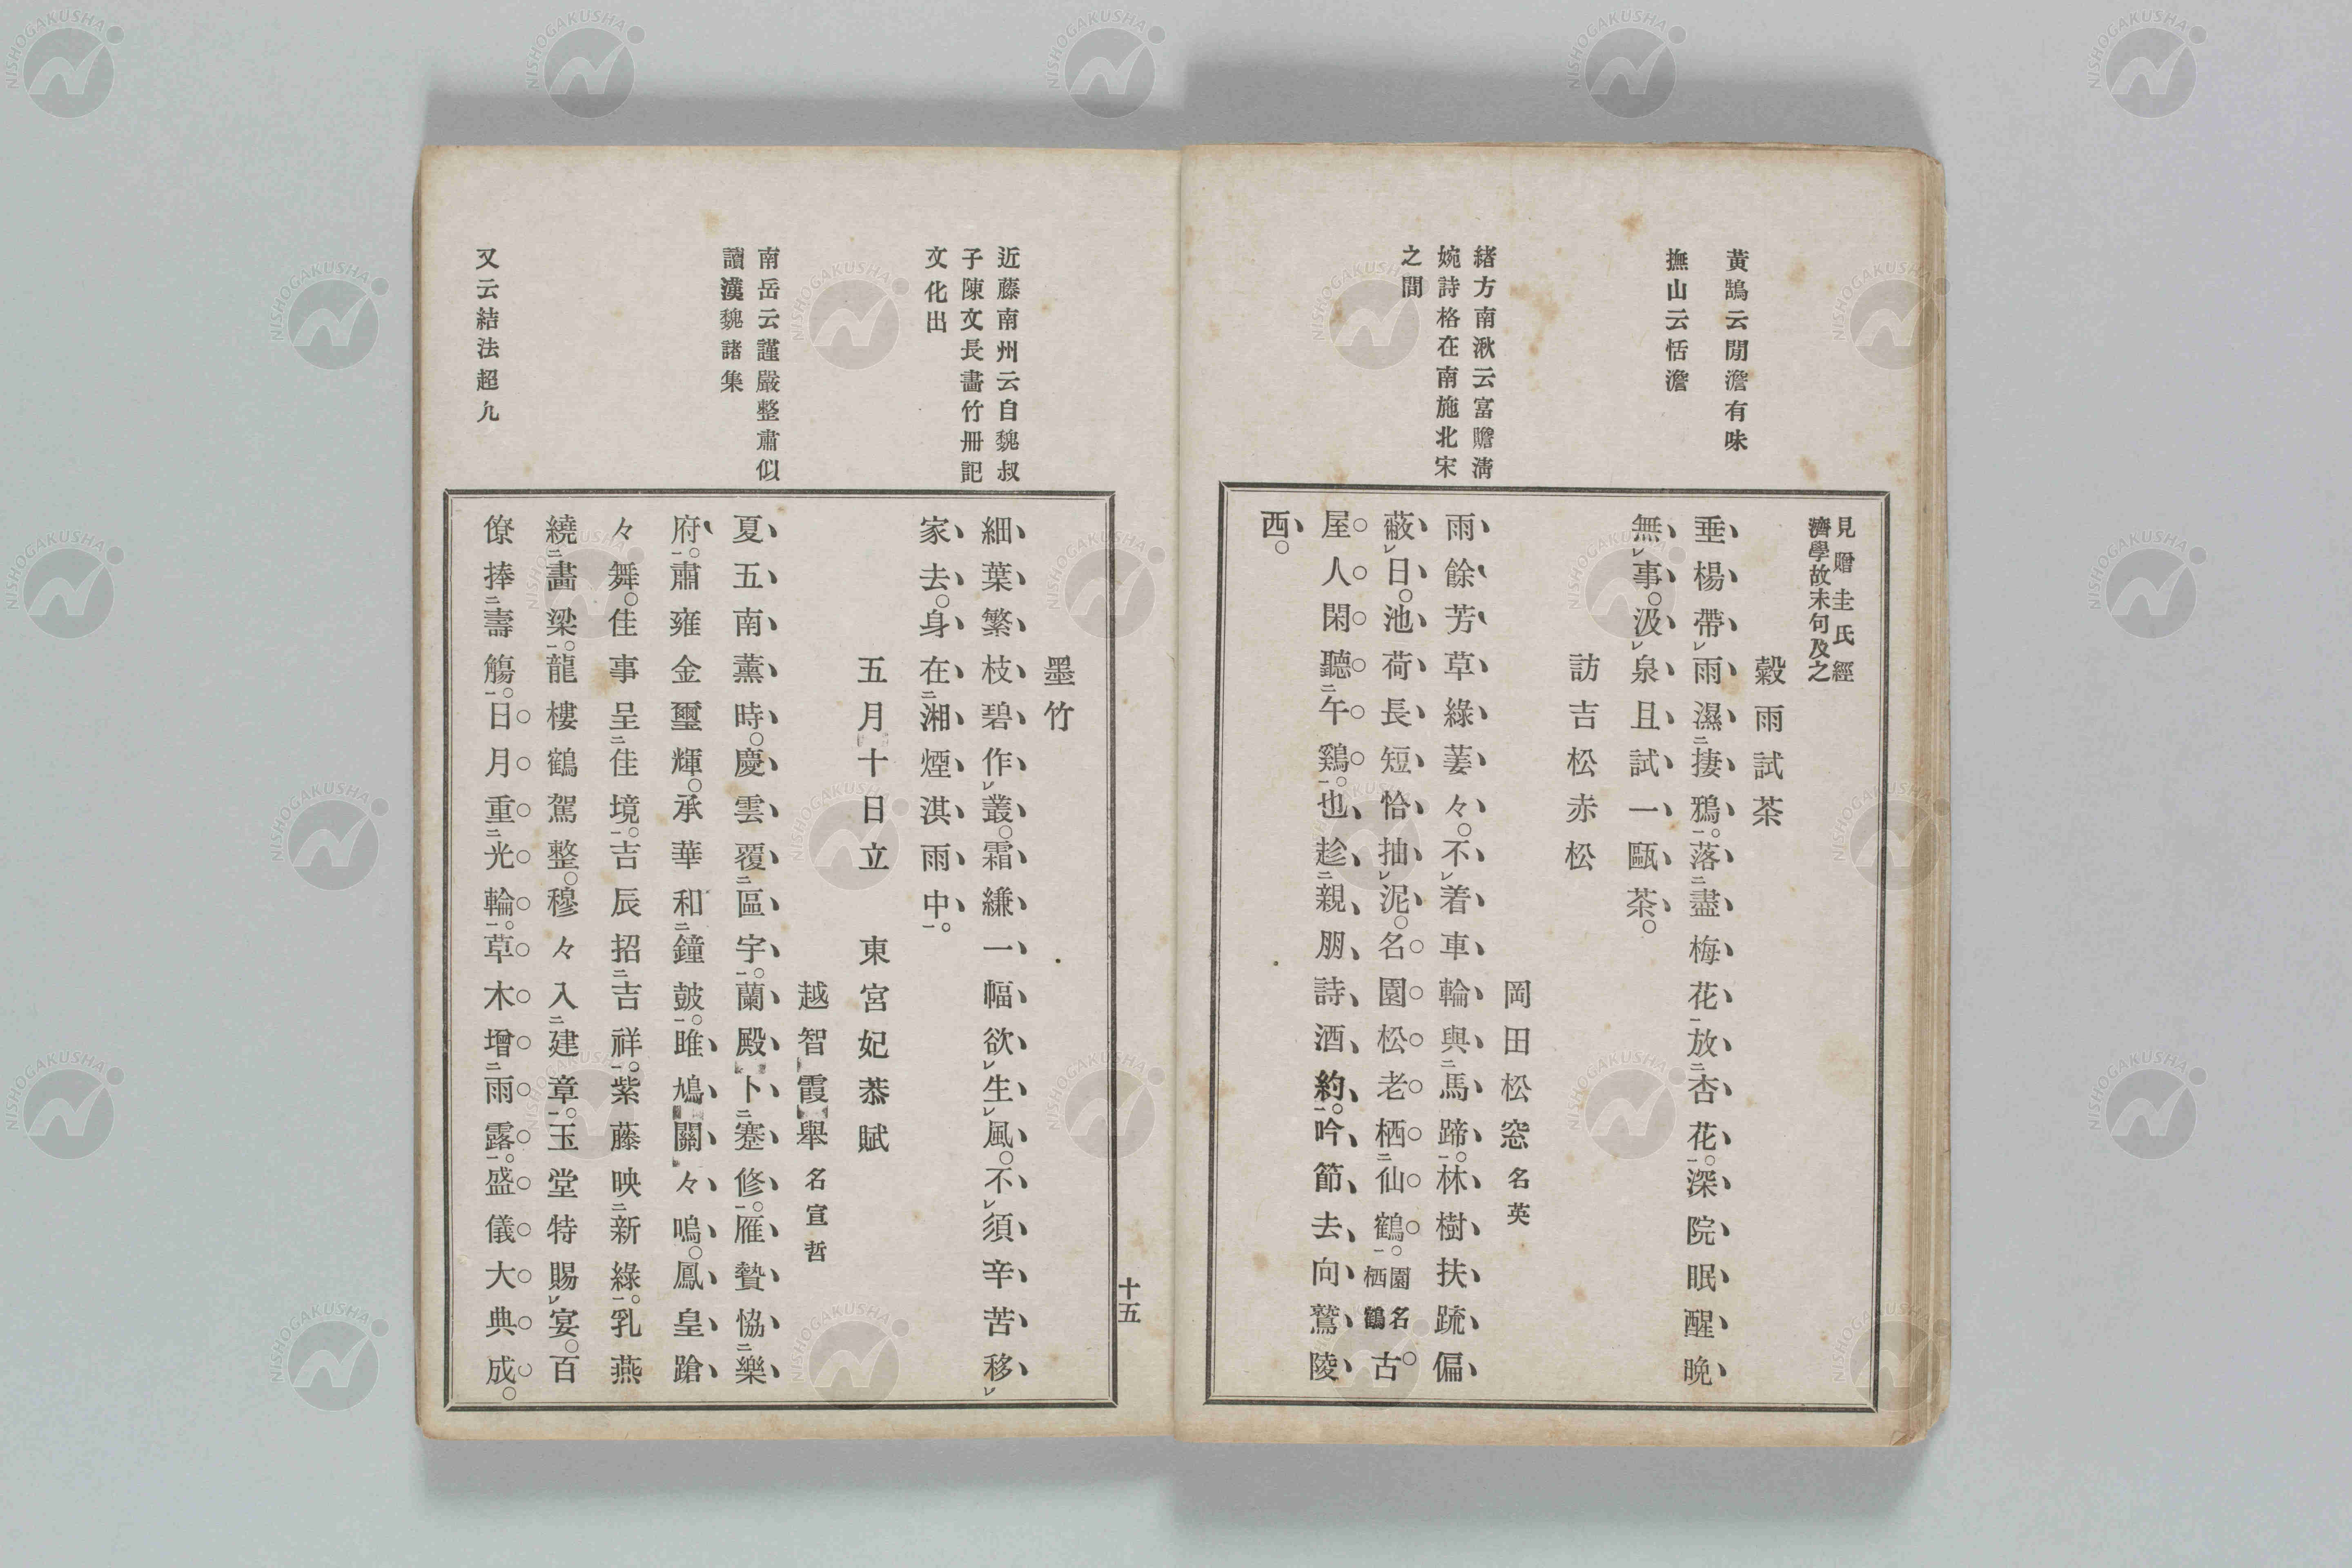 黃鵠云閒澹有味
撫山云恬澹
緒方南湫云富贍淸
婉詩格在南施北宋
之間
見贈圭氏經
濟學故末句及之
穀雨試茶
垂楊帶雨濕捿鴉。落盡梅花放杏花。深院眠醒晚
無事。汲泉且試一甌茶。
訪吉松赤松
岡田松窓名英
雨餘芳草綠萋々。不着車輪與馬蹄。林樹扶疏偏
蔽日。池荷長短恰抽泥。名園松老栖仙鶴。園名栖鶴古
屋人閑聽午鷄。也趁親朋詩酒約。吟節去向鷲陵
西。
近藤南州云自魏叔
子陳文長畵竹冊記
文化出
南岳云謹嚴整肅似
讀漢魏諸集
又云結法超凡
墨竹
細葉繁枝碧作叢。霜縑一幅欲生風。不須辛苦移
家去。身在湘煙淇雨中。
五月十日立東宮妃恭賦
越智霞舉名宣哲
夏五南薰時。慶雲覆區宇。蘭殿卜蹇修。雁贄恊樂
府。肅雍金璽輝。承華和鐘皷。雎鳩關々鳴。鳳皇蹌
々舞。佳事呈佳境。吉辰招吉祥。紫藤映新綠。乳燕
繞畵梁。龍樓鶴駕整。穆々入建章。玉堂特賜宴。百
僚捧壽觴。日月重光輪。草木增雨露。盛儀大典成。
十五
NISHOGAKUSHA